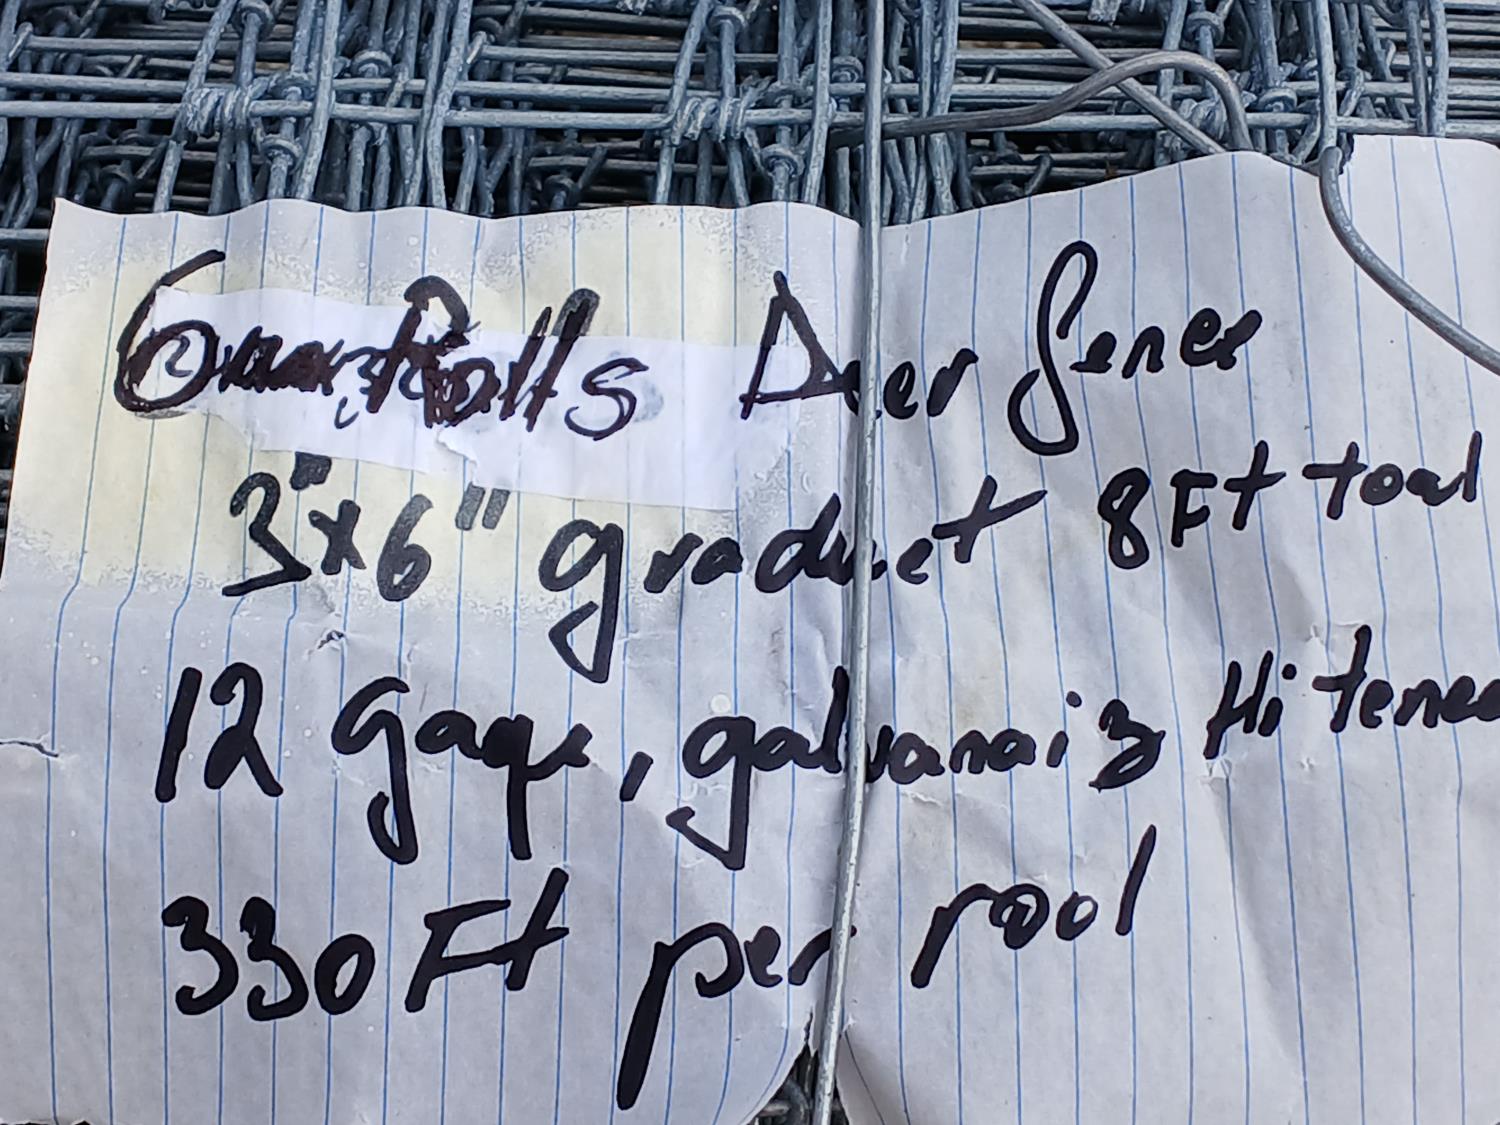 Rolls Deer fence
3"x6" graduet 8Ft toal
12 gage, galvanaiz Hi tenee
330Ft per rool